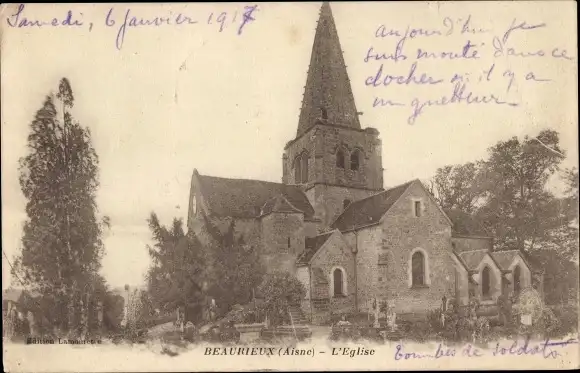 Samedi, 6 janvier 1917
aujourd'hui je
suis monté dans ce
clocher où il y a
un guetteur
Edition Lamarre
BEAURIEUX (Aisne) - L'Eglise
Tombes de soldats